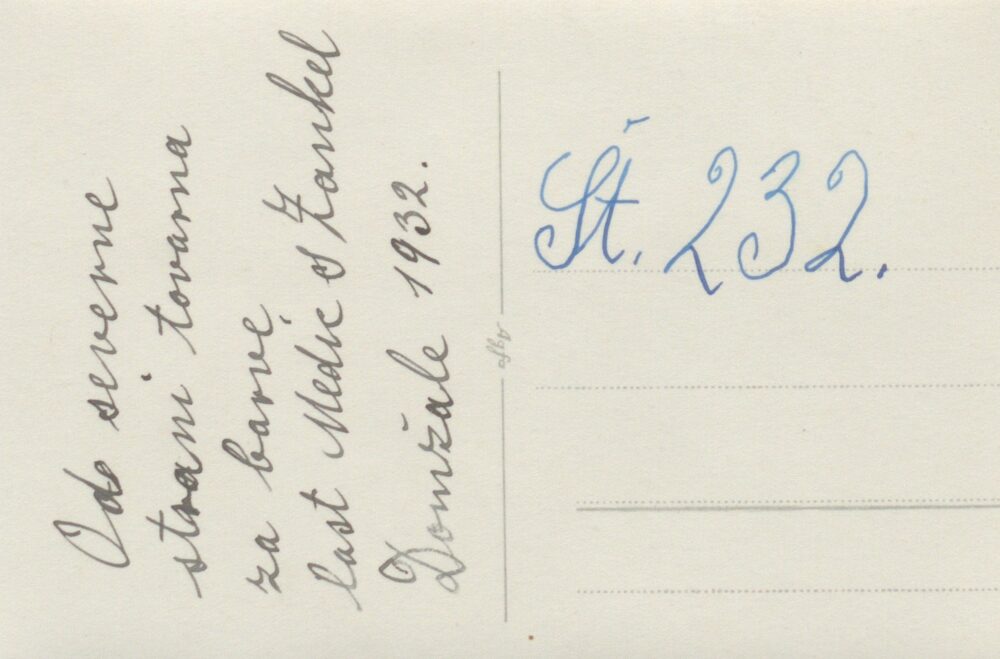 Od severne
strani tovarna
za barve,
last Medic & Zankel
Domžale 1932.
Agfa
Št. 232.